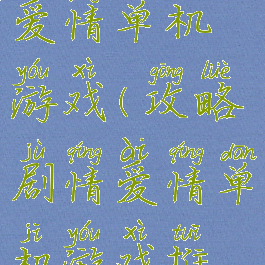 爱情单机
yóu xì gōng lüè
游戏(攻略
jù qíng ài qíng dān
剧情爱情单
jī yóu xì tuī
机游戏推